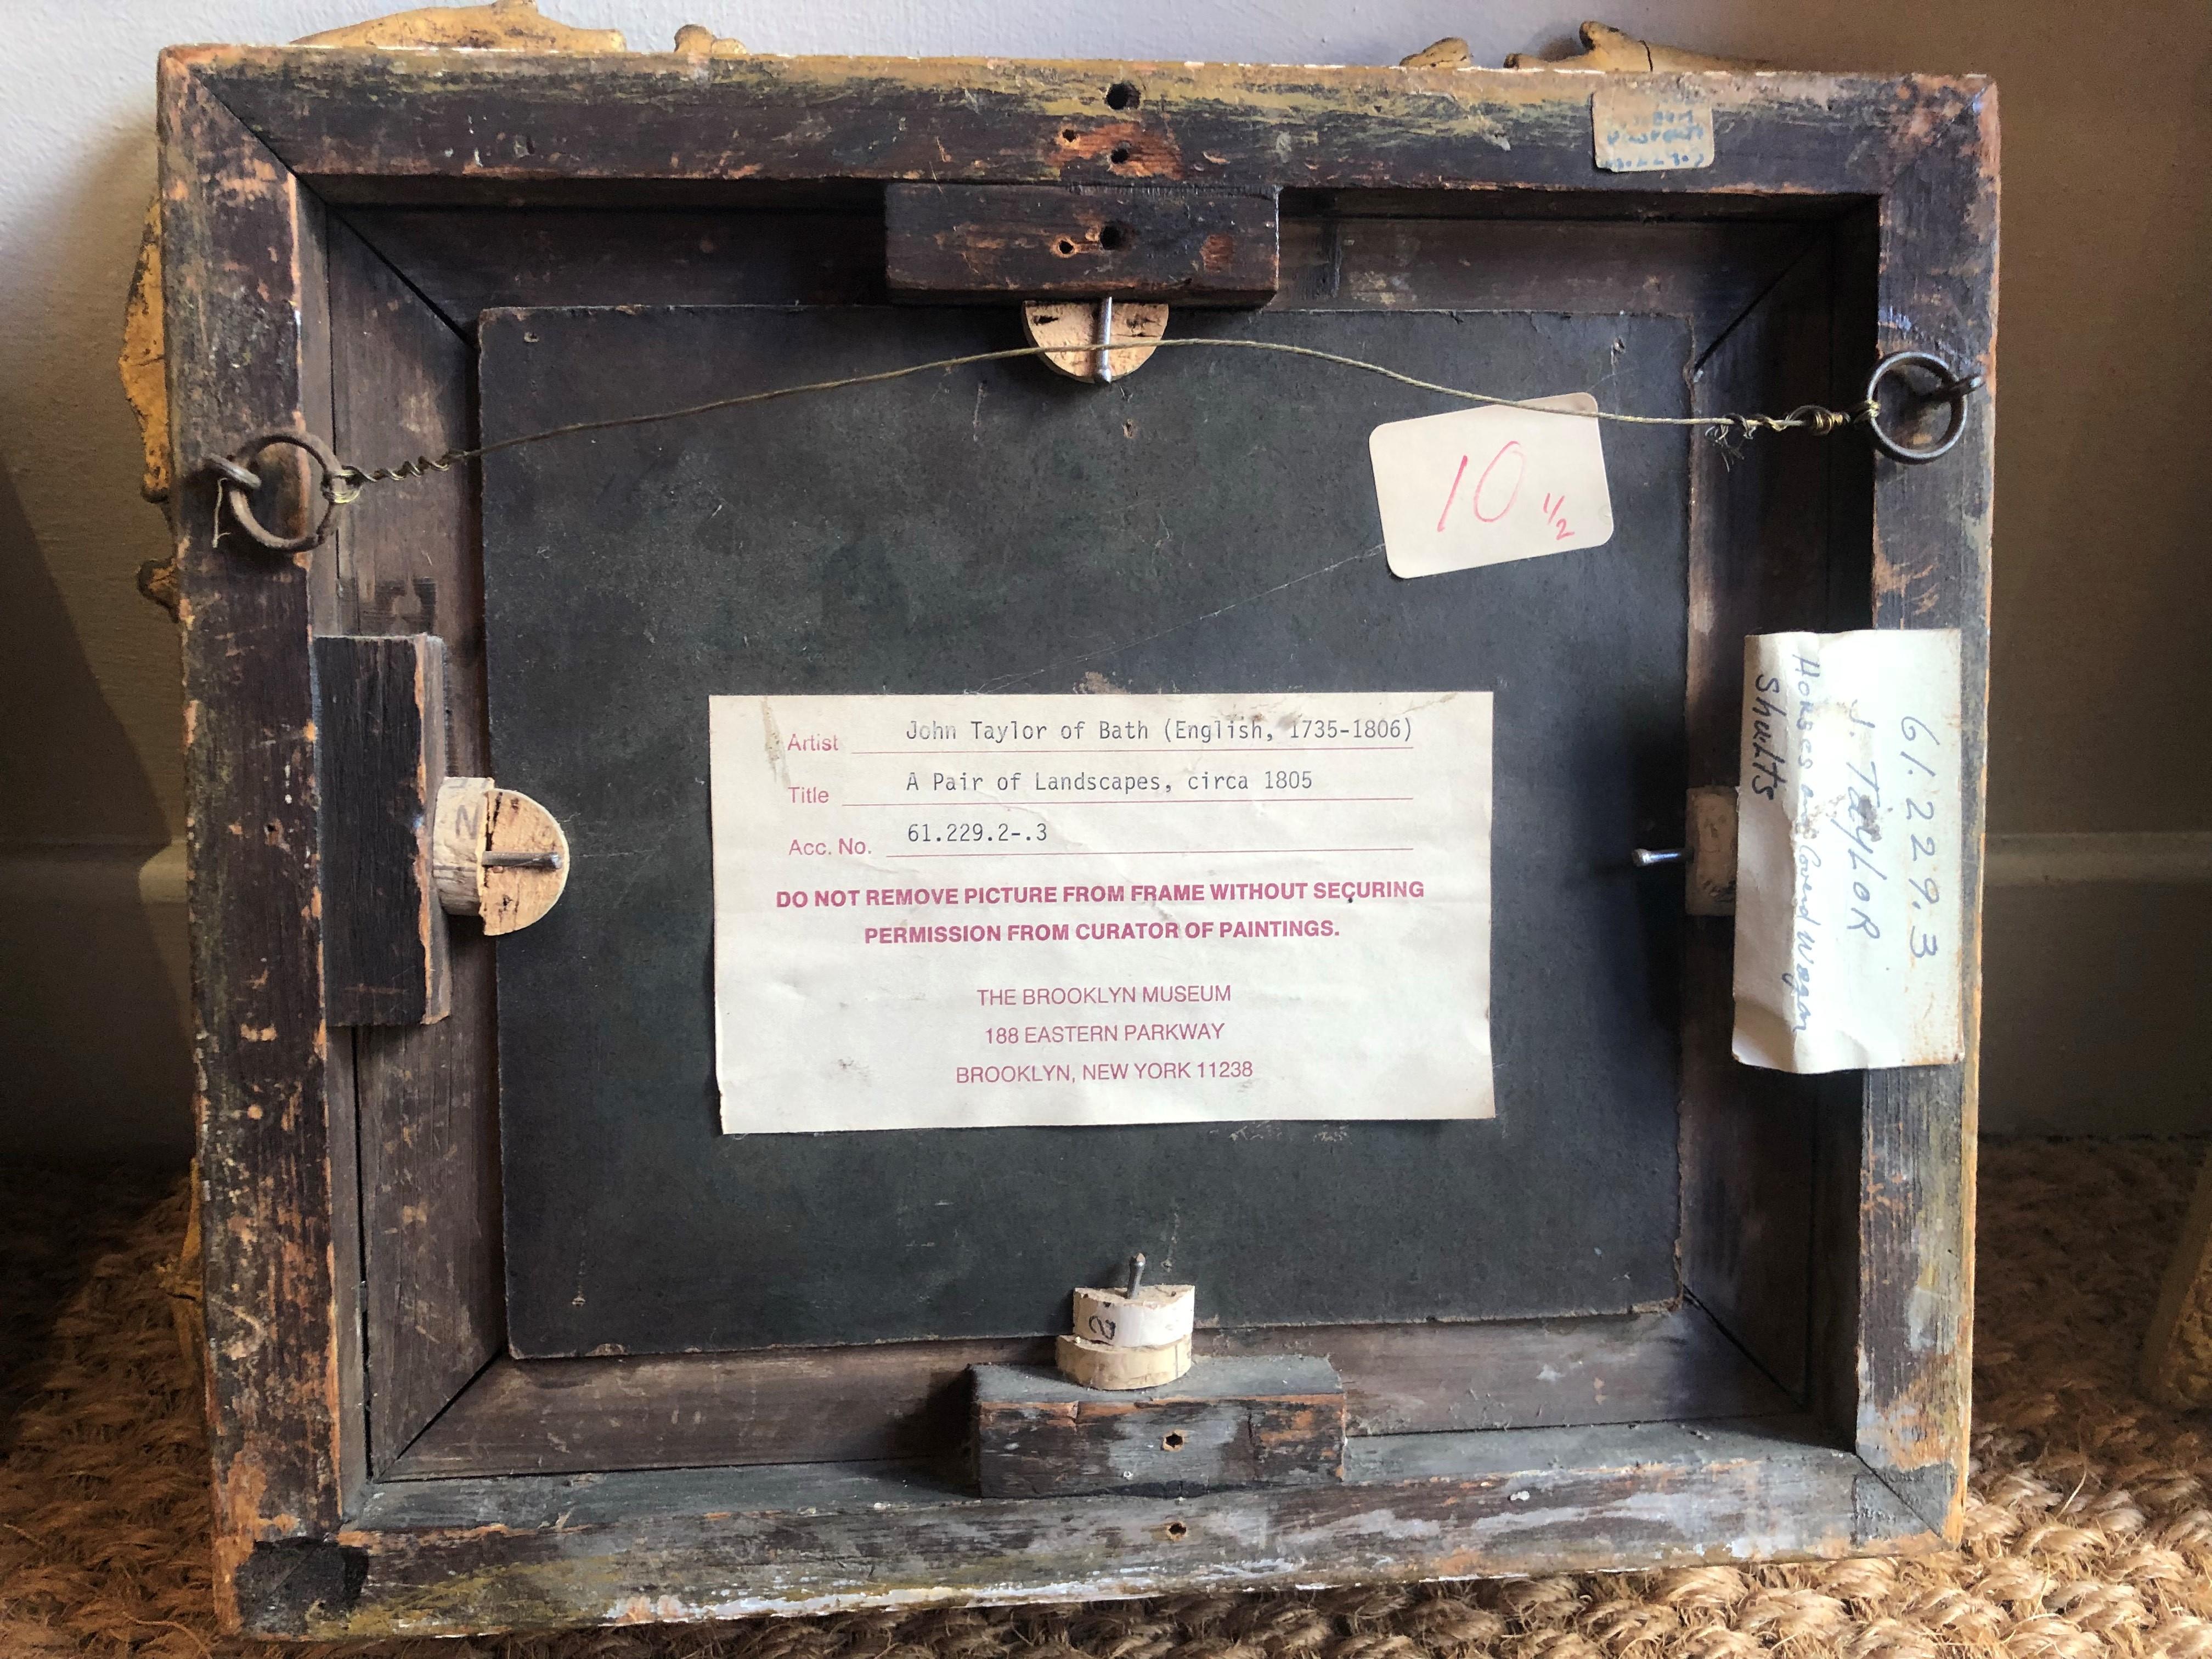 10 1/2
Artist John Taylor of Bath (English, 1735-1806)
Title A Pair of Landscapes, circa 1805
Acc. No. 61.229.2-.3
DO NOT REMOVE PICTURE FROM FRAME WITHOUT SECURING
PERMISSION FROM CURATOR OF PAINTINGS.
THE BROOKLYN MUSEUM
188 EASTERN PARKWAY
BROOKLYN, NEW YORK 11238
61.229.3
J. TAYLOR
Horses and Coverd Wagon
2
2